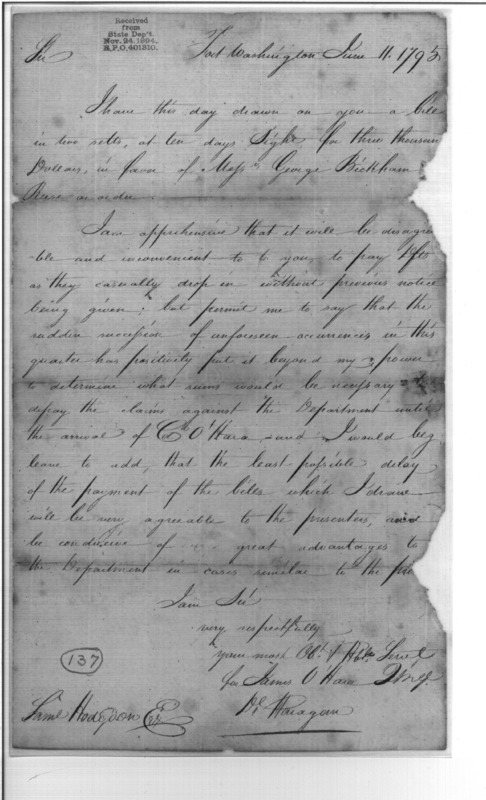 Received
from
State Dep't.
Nov. 24, 1894.
R.P.O. 401310.
Sir Fort Washington June 11. 1795
I have this day drawn on you a bill
in two setts, at ten days Sight for three thousand
Dollars, in favor of Messrs George Bickham
Reese or order
I am apprehensive that it will be disagrea
-ble and inconvenient to to you, to pay Dfts
as they casually drop in without previous notice
being given; but permit me to say that the
sudden succession of unforeseen occurrences in this
quarter has positively put it beyond my power
to determine what sums would be necessary to
defray the claims against the Department until
the arrival of Col O'Hara and I would beg
leave to add, that the least possible delay
of the payment of the bills which I draw
will be very agreeable to the presenters, and
be conducive of great advantages to
the Department in cases similar to the pre
I am Sir
very respectfully
your most Obt & Hble Servt
for James O Hara QMG.
Dl Haragan
137
Saml Hodgdon Esqr